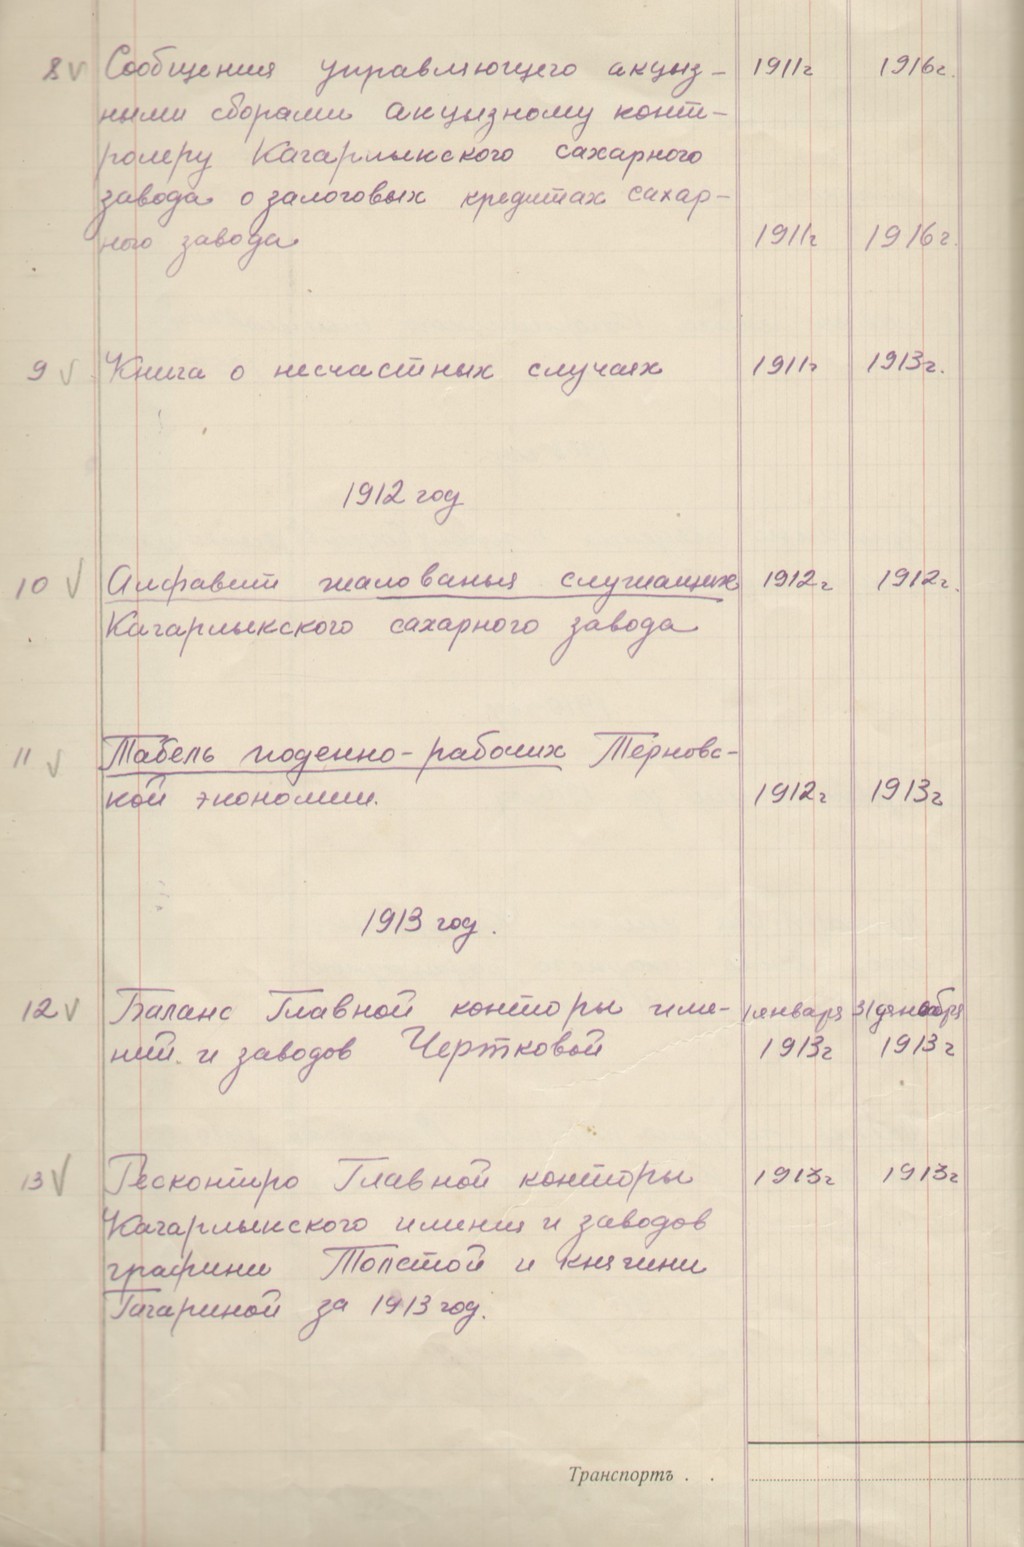 8 √ Сообщения управляющего акцыз- 1911г 1916г.
ными сборами акцызному конт-
ролеру Кагарлыкского сахарного
завода о залоговых кредитах сахар-
ного завода 1911г 1916г.
9 √ Книга о несчастных случаях 1911г 1913г.
1912 год
10 √ Алфавит жалованья служащих 1912г 1912г.
Кагарлыкского сахарного завода
11 √ Табель поденно-рабочих Терновс-
кой экономии. 1912г 1913г
1913 год.
12 √ Баланс Главной конторы име- 1 января 31 декабря
ний и заводов Чертковой 1913г 1913г
13 √ Ресконтро Главной конторы 1913г 1913г
Кагарлыкского имения и заводов
графини Толстой и княгини
Гагариной за 1913 год.
Транспортъ . .